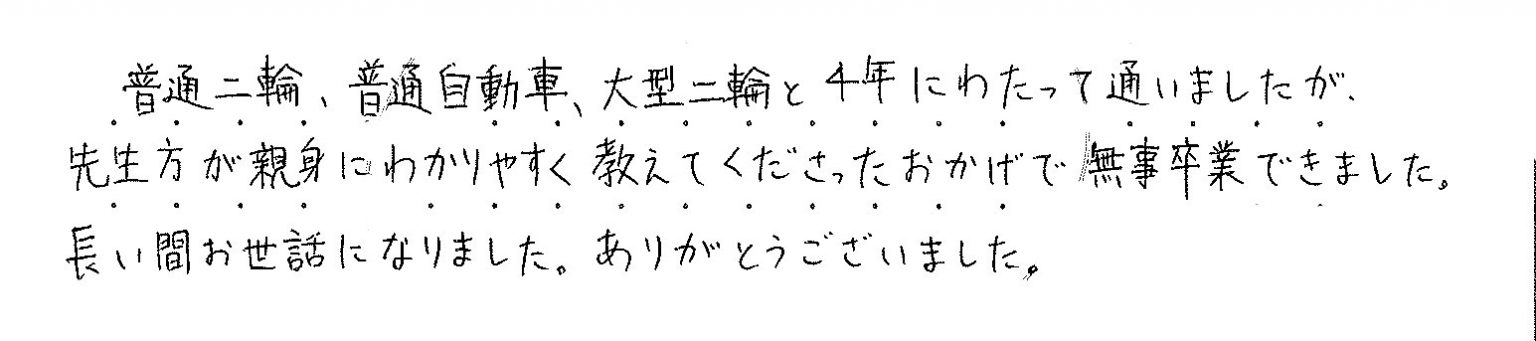 普通二輪、普通自動車、大型二輪と4年にわたって通いましたが、
先生方が親身にわかりやすく教えてくださったおかげで無事卒業できました。
長い間お世話になりました。ありがとうございました。